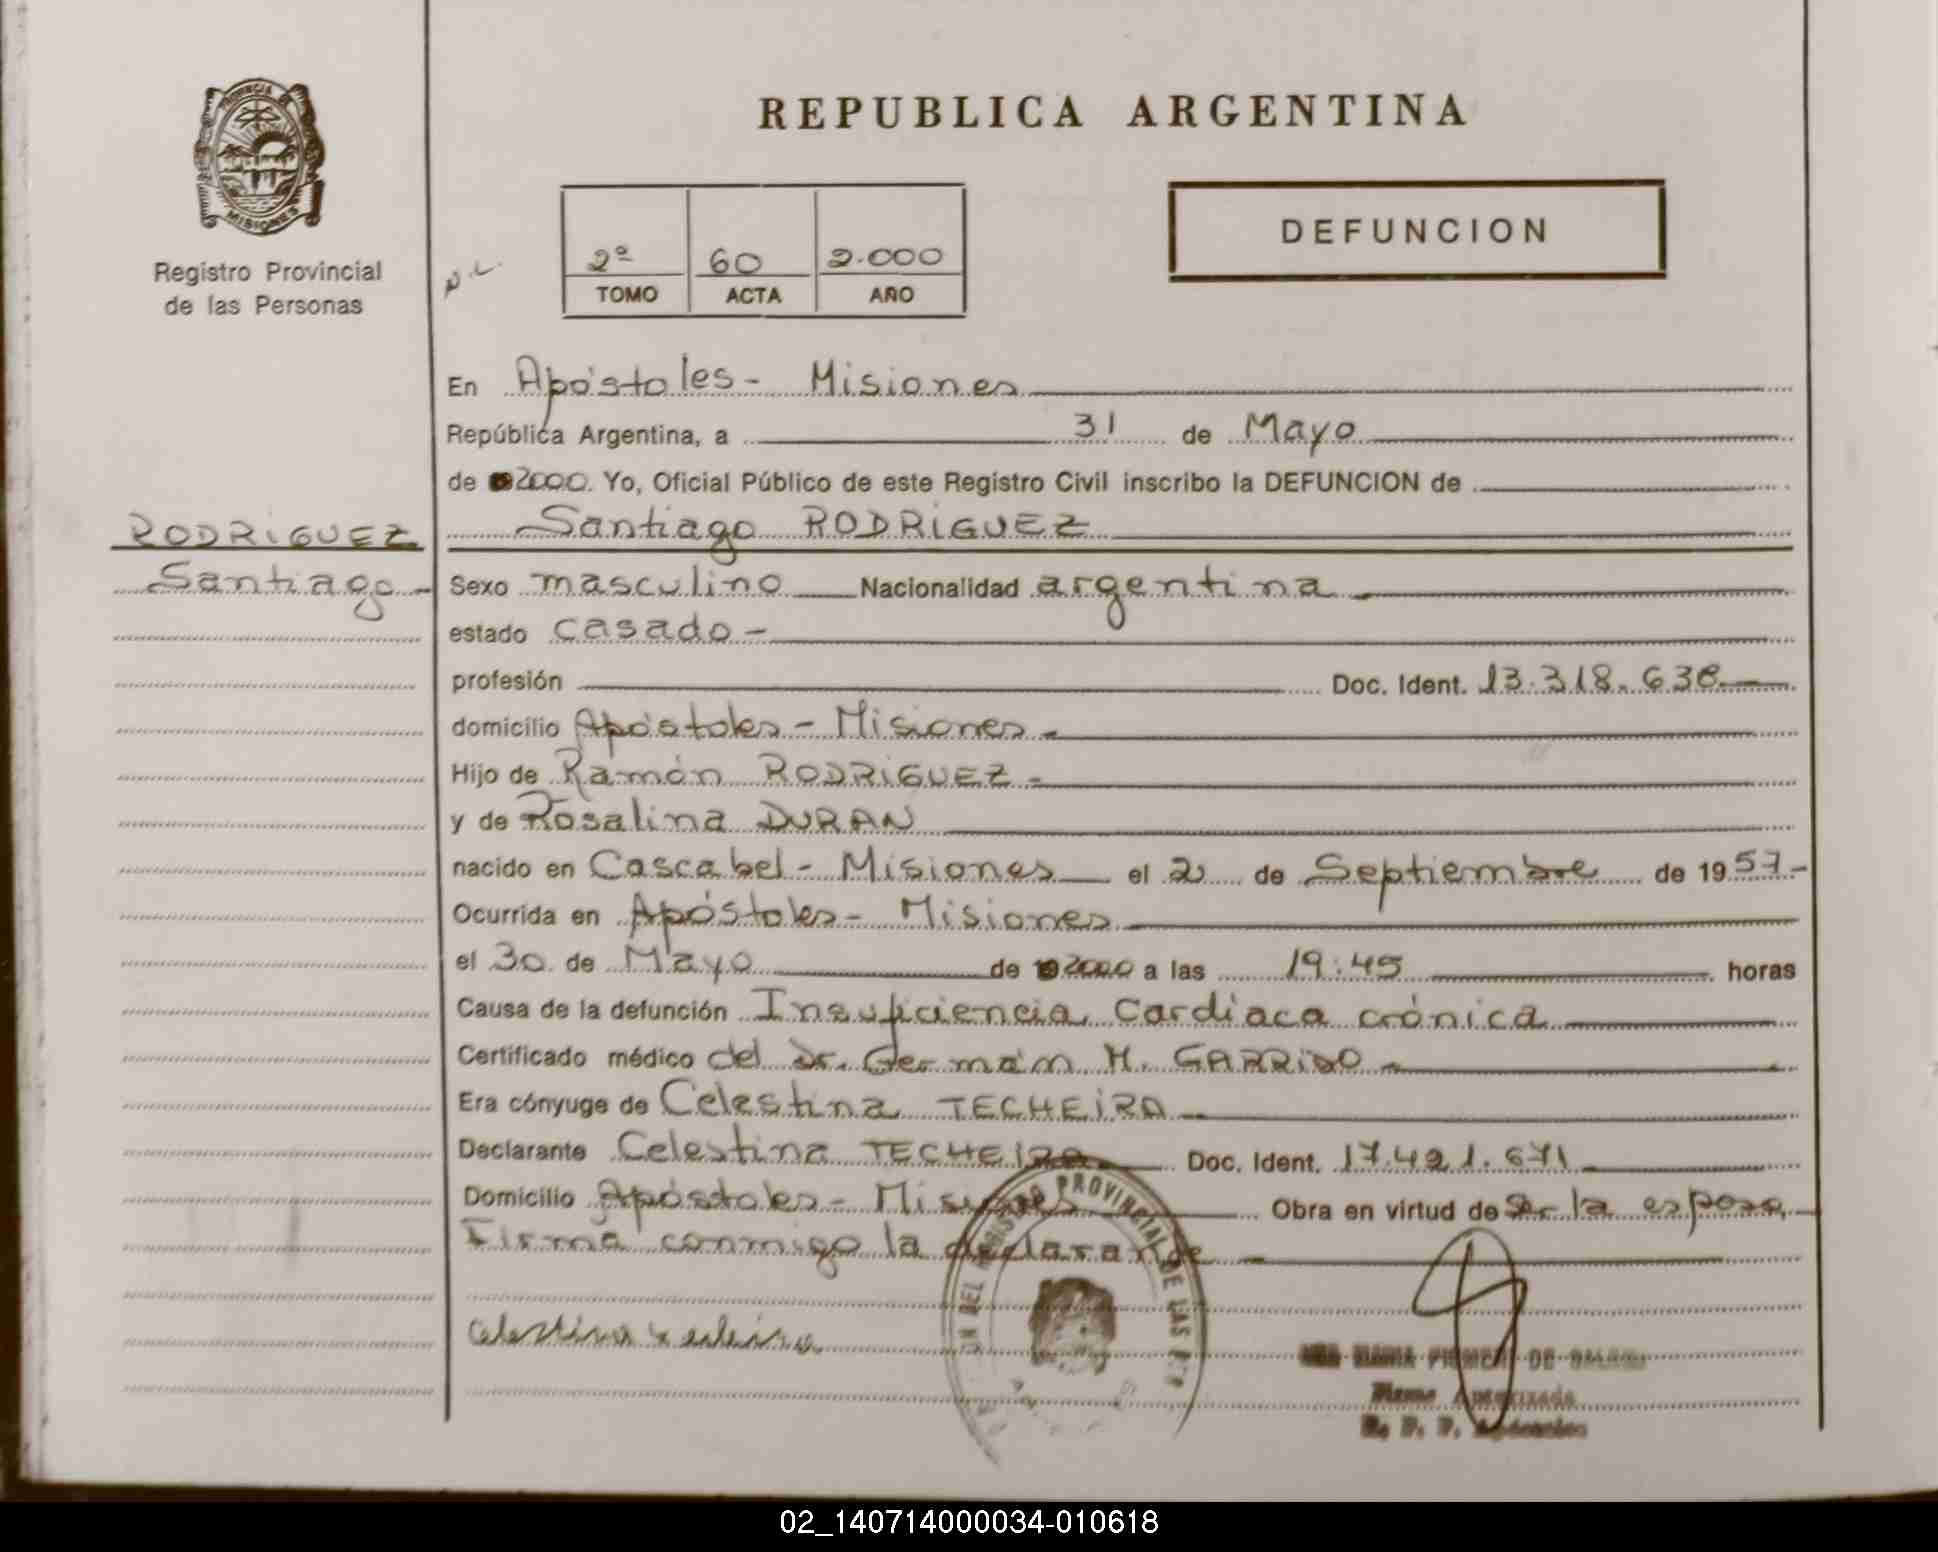 REPUBLICA ARGENTINA
PROVINCIA DE
MISIONES
Registro Provincial
de las Personas
N.L.
2º 60 2.000
TOMO ACTA AÑO
DEFUNCION
En Apóstoles - Misiones
República Argentina, a 31 de Mayo
de 2000. Yo, Oficial Público de este Registro Civil inscribo la DEFUNCION de
RODRIGUEZ
Santiago
Santiago RODRIGUEZ
Sexo masculino Nacionalidad argentina
estado casado -
profesión Doc. Ident. 13.318.638
domicilio Apóstoles - Misiones
Hijo de Ramón RODRIGUEZ
y de Rosalina DURAN
nacido en Cascabel - Misiones el 2 de Septiembre de 1957-
Ocurrida en Apóstoles - Misiones
el 30 de Mayo de 2000 a las 19:45 horas
Causa de la defunción Insuficiencia Cardiaca crónica
Certificado médico del Dr. Germán H. GARRIDO
Era cónyuge de Celestina TECHEIRA
Declarante Celestina TECHEIRA Doc. Ident. 17.421.671
Domicilio Apóstoles - Misiones Obra en virtud de ser la esposa,
Firma conmigo la declarante
PROVINCIAL DE LAS
Celestina
MARIA DE
Firma Autorizada
R. P. P. Apóstoles
02_140714000034-010618